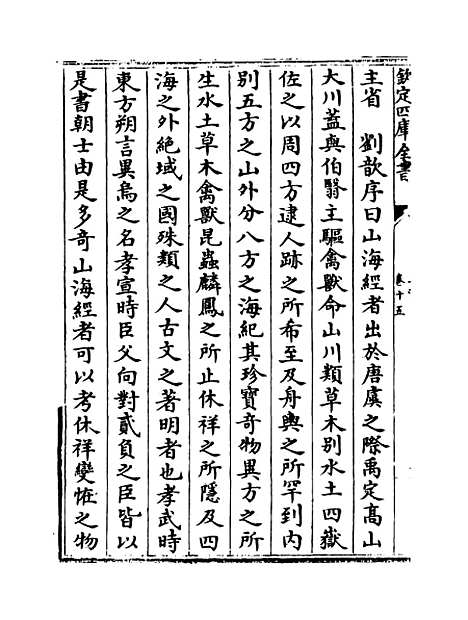 欽定四庫全書
卷十五
主省　劉歆序曰山海經者出於唐虞之際禹定髙山
大川葢與伯翳主驅禽獸命山川類草木别水土四嶽
佐之以周四方逮人跡之所布至及舟輿之所罕到内
别五方之山外分八方之海紀其珍寶奇物異方之所
生水土草木禽獸昆蟲麟鳳之所止休祥之所隱及四
海之外絶域之國殊類之人古文之著明者也孝武時
東方朔言異鳥之名孝宣時臣父向對貳負之臣皆以
是書朝士由是多奇山海經者可以考休祥變恠之物